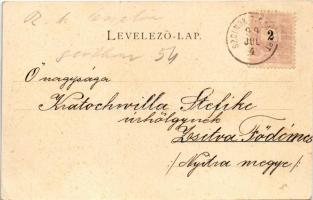 LEVELEZŐ-LAP.
54
2
99
JUL
4
Ő nagysága
Kratochwilla Stefike
úrhölgynek
Zsitva Födémes
/: Nyitra megye :/